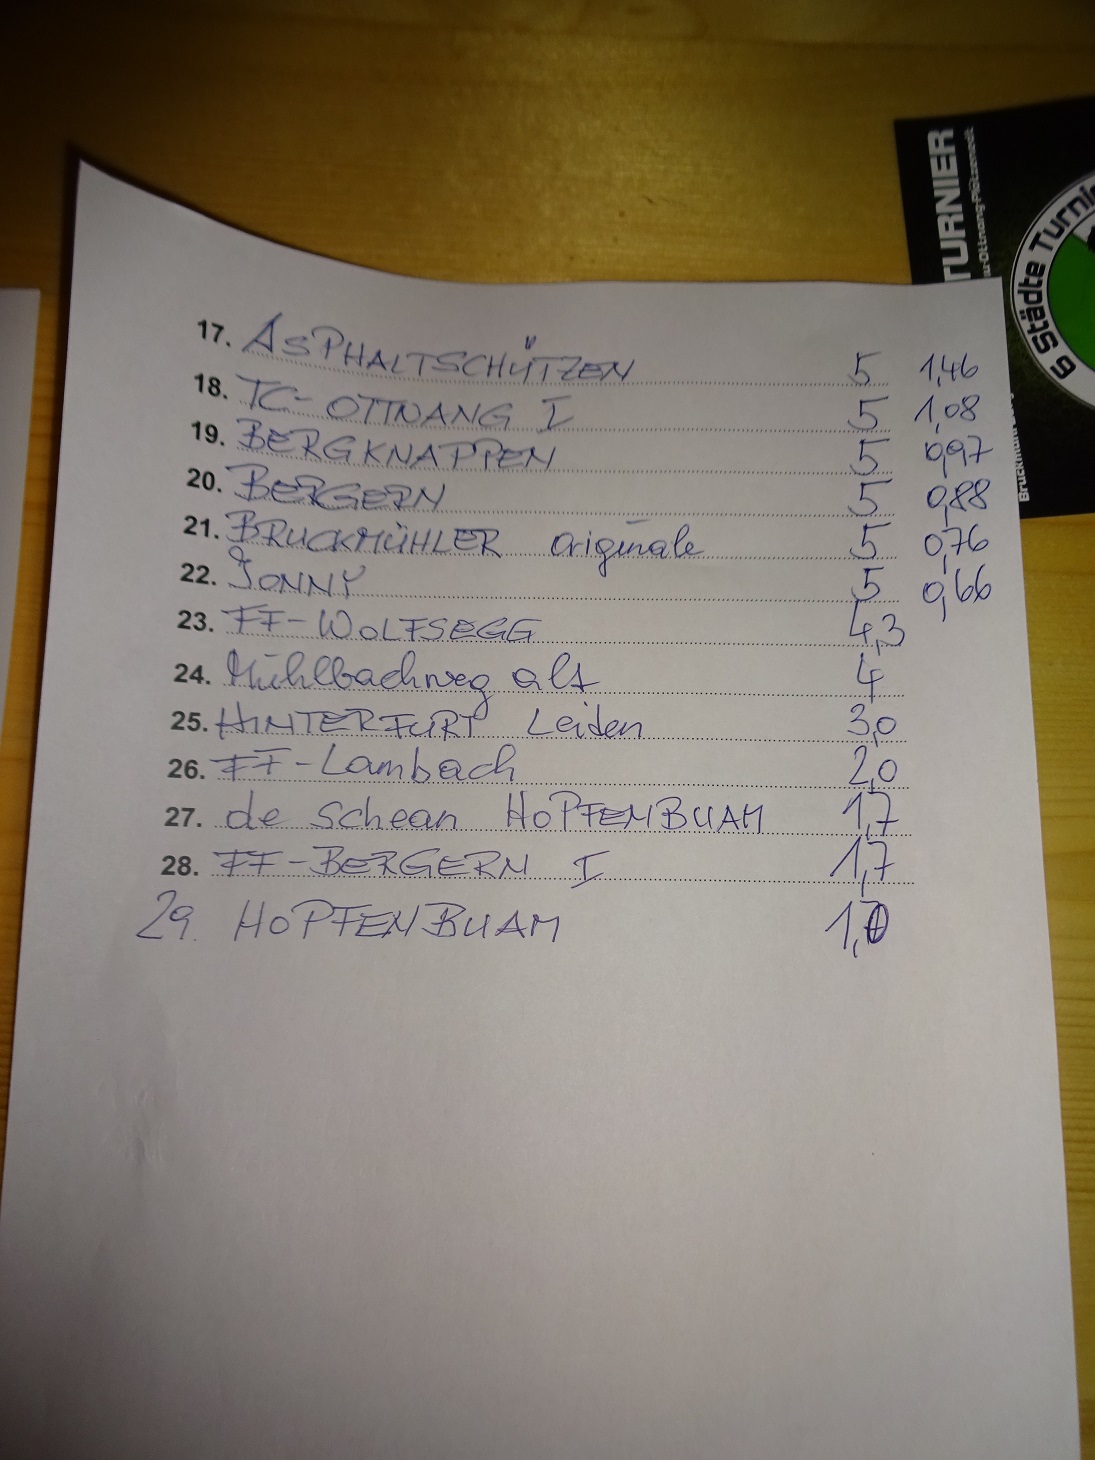 17. ASPHALTSCHÜTZEN 5 1,46
18. TC-OTTNANG I 5 1,08
19. BERGKNAPPEN 5 0,97
20. BERGERN 5 0,88
21. BRUCKMÜHLER Originale 5 0,76
22. JONNY 5 0,66
23. FF-WOLFSEGG 4,3
24. Mühlbachweg alt 4
25. HINTERFURT Leiden 3,0
26. FF-Lambach 2,0
27. de schean HOPFENBUAM 1,7
28. FF-BERGERN I 1,7
29. HOPFENBUAM 1,0
TURNIER
6 Städte Turnier